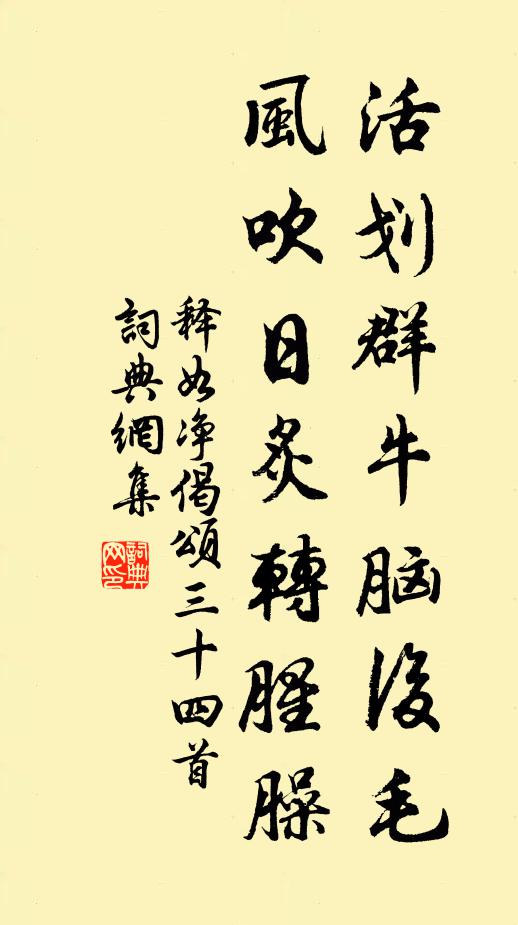 活划群牛脑後毛
風吹日炙轉腥臊
释如净偈頌三十四首
詞典網集
詞典网印